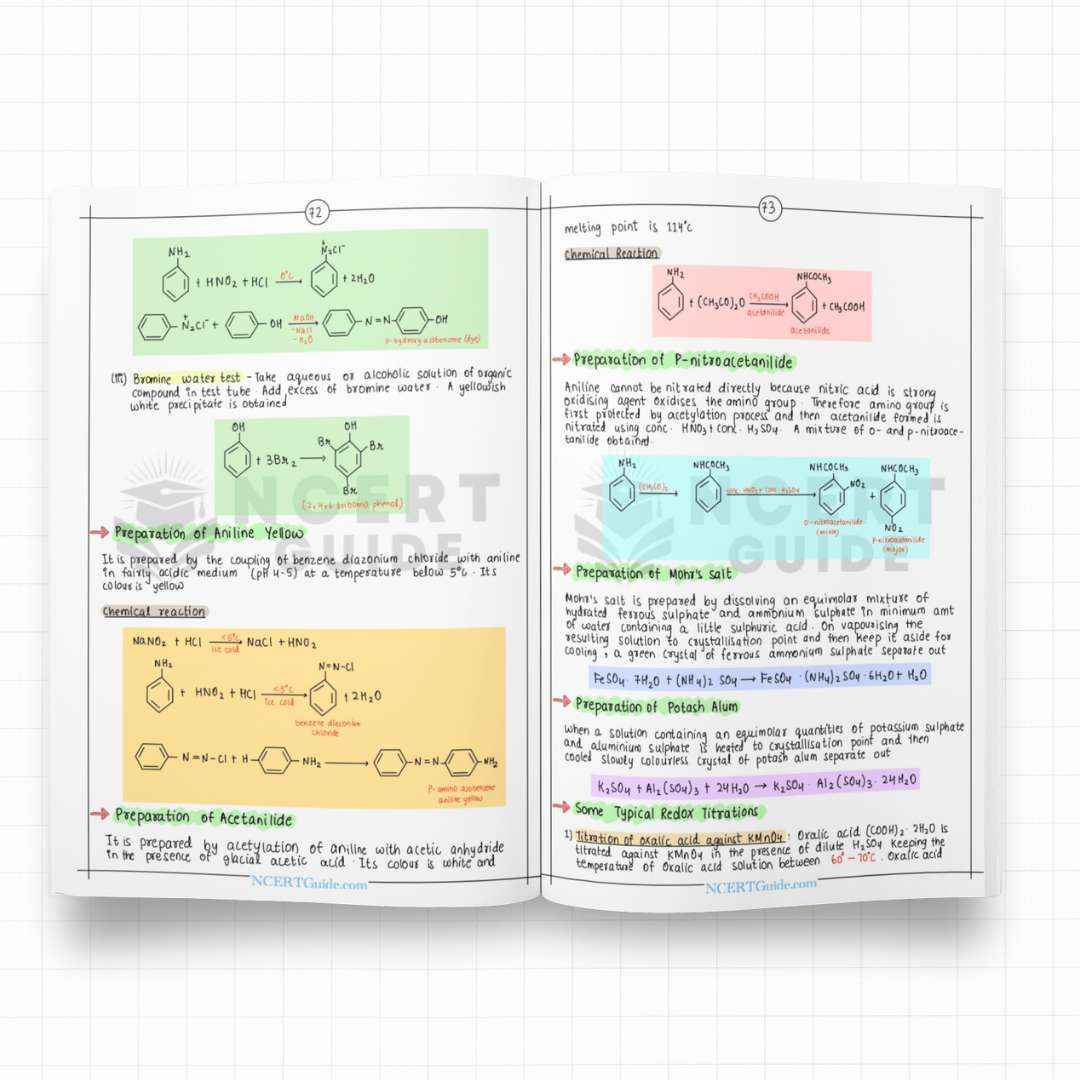 72
NH₂
N₂⁺Cl⁻
+ HNO₂ + HCl 0°C + 2H₂O
N₂⁺Cl⁻ + OH NaOH -NaCl -H₂O N=N OH
p-hydroxy azobenzene (dye)
(iii) Bromine water test - Take aqueous or alcoholic solution of organic
compound in test tube. Add excess of bromine water. A yellowish
white precipitate is obtained
OH
OH
+ 3Br₂
Br
Br
Br
(2,4,6-tribromo phenol)
NCERT GUIDE
Preparation of Aniline Yellow
It is prepared by the coupling of benzene diazonium chloride with aniline
in fairly acidic medium (pH 4-5) at a temperature below 5°C. Its
colour is yellow
Chemical reaction
NaNO₂ + HCl <5°C Ice cold NaCl + HNO₂
NH₂
N=N-Cl
+ HNO₂ + HCl <5°C Ice cold + 2H₂O
chloride
N=N-Cl + H NH₂ N=N NH₂
P-amino azobenzene
aniline yellow
Preparation of Acetanilide
It is prepared by acetylation of aniline with acetic anhydride
in the presence of glacial acetic acid. Its colour is white and
NCERTGuide.com
73
melting point is 114°C
Chemical Reaction
NH₂
NHCOCH₃
+ (CH₃CO)₂O CH₃COOH acetanilide + CH₃COOH
acetanilide
Preparation of P-nitroacetanilide
Aniline cannot be nitrated directly because nitric acid is strong
oxidising agent oxidises the amino group. Therefore amino group is
first protected by acetylation process and then acetanilide formed is
nitrated using conc. HNO₃ + conc. H₂SO₄. A mixture of o- and p-nitroace-
tanilide obtained.
NH₂
NHCOCH₃
NHCOCH₃
NHCOCH₃
conc. HNO₃ + conc. H₂SO₄
NO₂
+
NO₂
O-nitroacetanilide
(minor)
P-nitroacetanilide
(major)
NCERT GUIDE
Preparation of Mohr's salt
Mohr's salt is prepared by dissolving an equimolar mixture of
hydrated ferrous sulphate and ammonium sulphate in minimum amt
of water containing a little sulphuric acid. On vapourising the
resulting solution to crystallisation point and then keep it aside for
cooling, a green crystal of ferrous ammonium sulphate separate out
FeSO₄· 7H₂O + (NH₄)₂ SO₄ → FeSO₄ · (NH₄)₂SO₄·6H₂O + H₂O
Preparation of Potash Alum
When a solution containing an equimolar quantities of potassium sulphate
and aluminium sulphate is heated to crystallisation point and then
cooled slowly colourless crystal of potash alum separate out
K₂SO₄ + Al₂(SO₄)₃ + 24H₂O → K₂SO₄· Al₂(SO₄)₃· 24H₂O
Some Typical Redox Titrations
1) Titration of oxalic acid against KMnO₄: Oxalic acid (COOH)₂· 2H₂O is
titrated against KMnO₄ in the presence of dilute H₂SO₄ keeping the
temperature of oxalic acid solution between 60° – 70°C. Oxalic acid
NCERTGuide.com